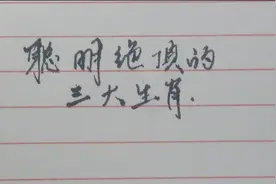 聪明绝顶的
三大生肖.